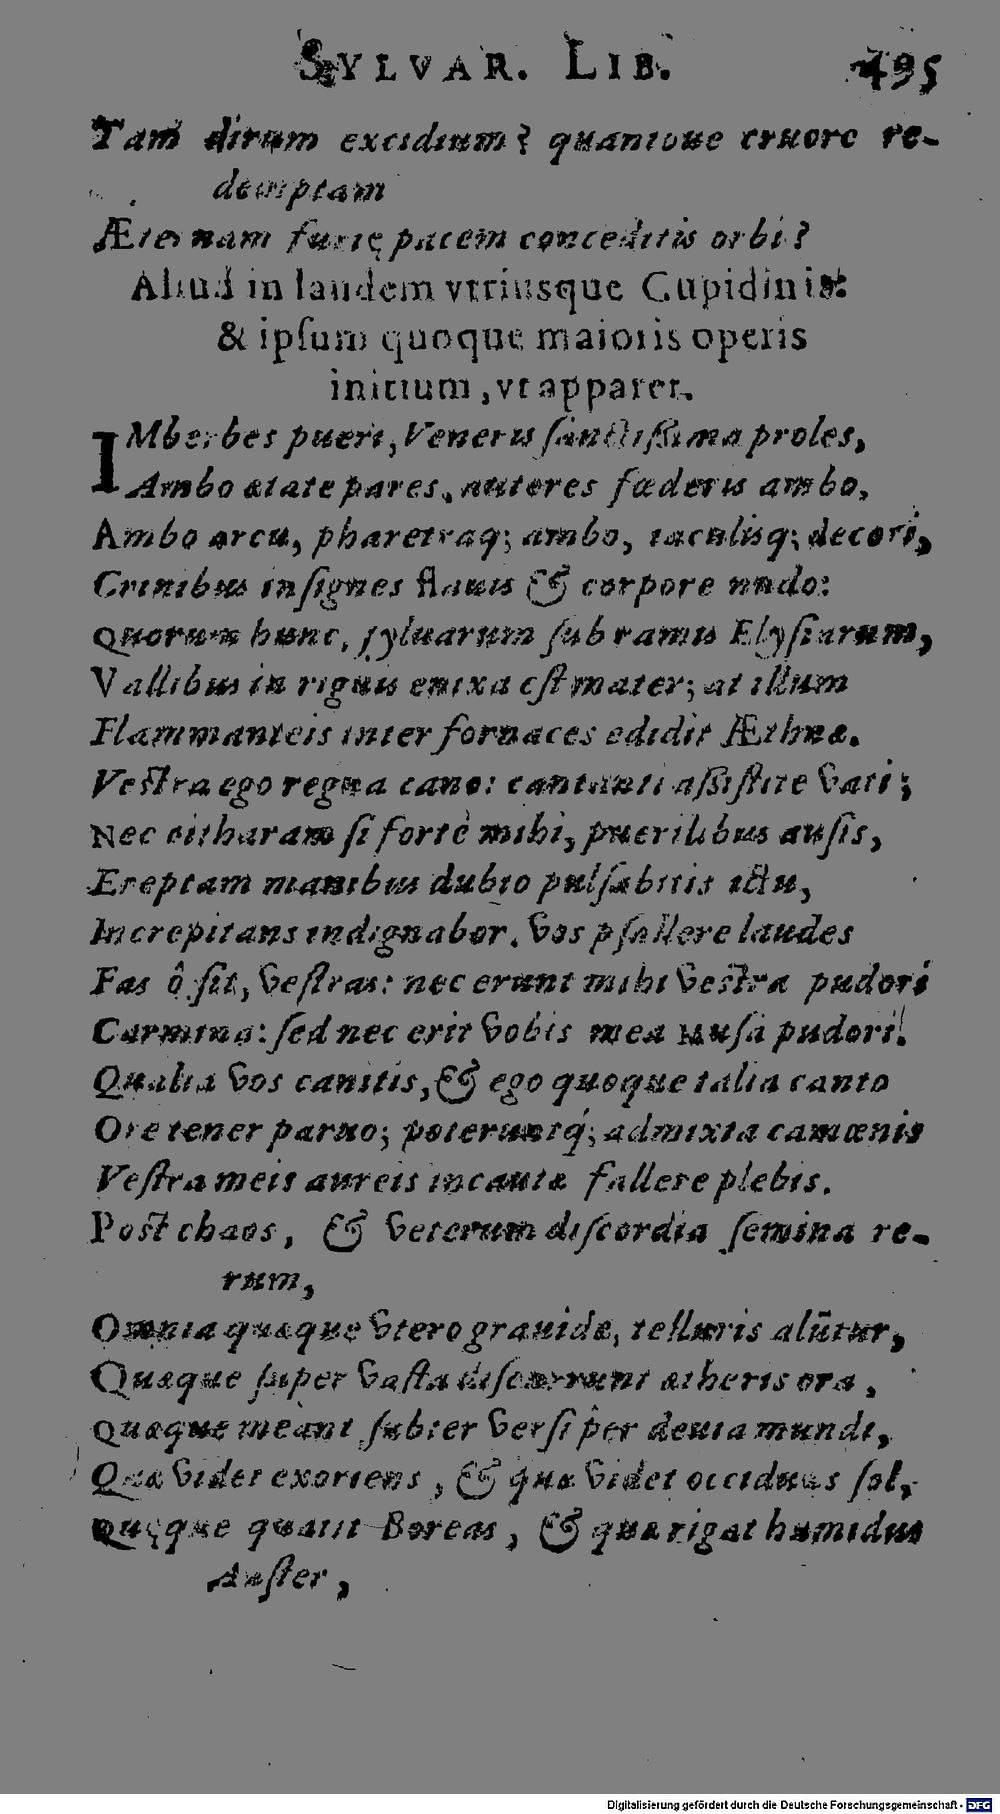 SYLVAR. LIB. 495
Tam dirum excidium? quantoue cruore re-
demptam
Æternam furię pacem conceditis orbi?
Aliud in laudem vtriusque Cupidinis:
& ipſum quoque maioris operis
initium, vt apparet.
IMberbes pueri, Veneris ſanctiſsima proles,
Ambo ætate pares, autores fœderis ambo,
Ambo arcu, pharetraq; ambo, iaculisq; decori,
Crinibus inſignes flauis & corpore nudo:
Quorum hunc, ſyluarum ſub ramis Elyſiarum,
Vallibus in riguis enixa eſt mater; at illum
Flammanteis inter fornaces edidit Æthnæ.
Veſtra ego regna cano: cantanti aſsiſtite vati;
Nec citharam ſi fortè mihi, puerilibus auſis,
Ereptam manibus dubio pulſabitis ictu,
Increpitans indignabor. vos pſallere laudes
Fas ô ſit, veſtras: nec erunt mihi veſtra pudori
Carmina: ſed nec erit vobis mea Muſa pudori.
Qualia vos canitis, & ego quoque talia canto
Ore tener paruo; poteruntq́; admixta camœnis
Veſtra meis aureis incautæ fallere plebis.
Poſt chaos, & veterum diſcordia ſemina re-
rum,
Omnia quæque vtero grauidæ, telluris alūtur,
Quæque ſuper vaſta diſcurrunt ætheris ora,
Quæque meant ſubter verſi per deuia mundi,
Quæ videt exoriens, & quæ videt occiduus ſol,
Quęque quatit Boreas, & quæ rigat humidus
Auſter,
Digitalisierung gefördert durch die Deutsche Forschungsgemeinschaft - DFG